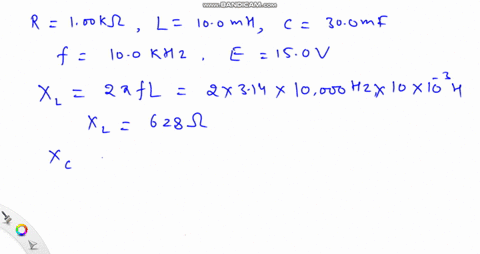 WWW.BANDICAM.COM
R = 1.00KΩ, L = 10.0 mH, C = 30.0mF
f = 10.0 KHz, E = 15.0V
X_L = 2πfL = 2 × 3.14 × 10,000 Hz × 10 × 10⁻³ H
X_L = 628 Ω
X_C